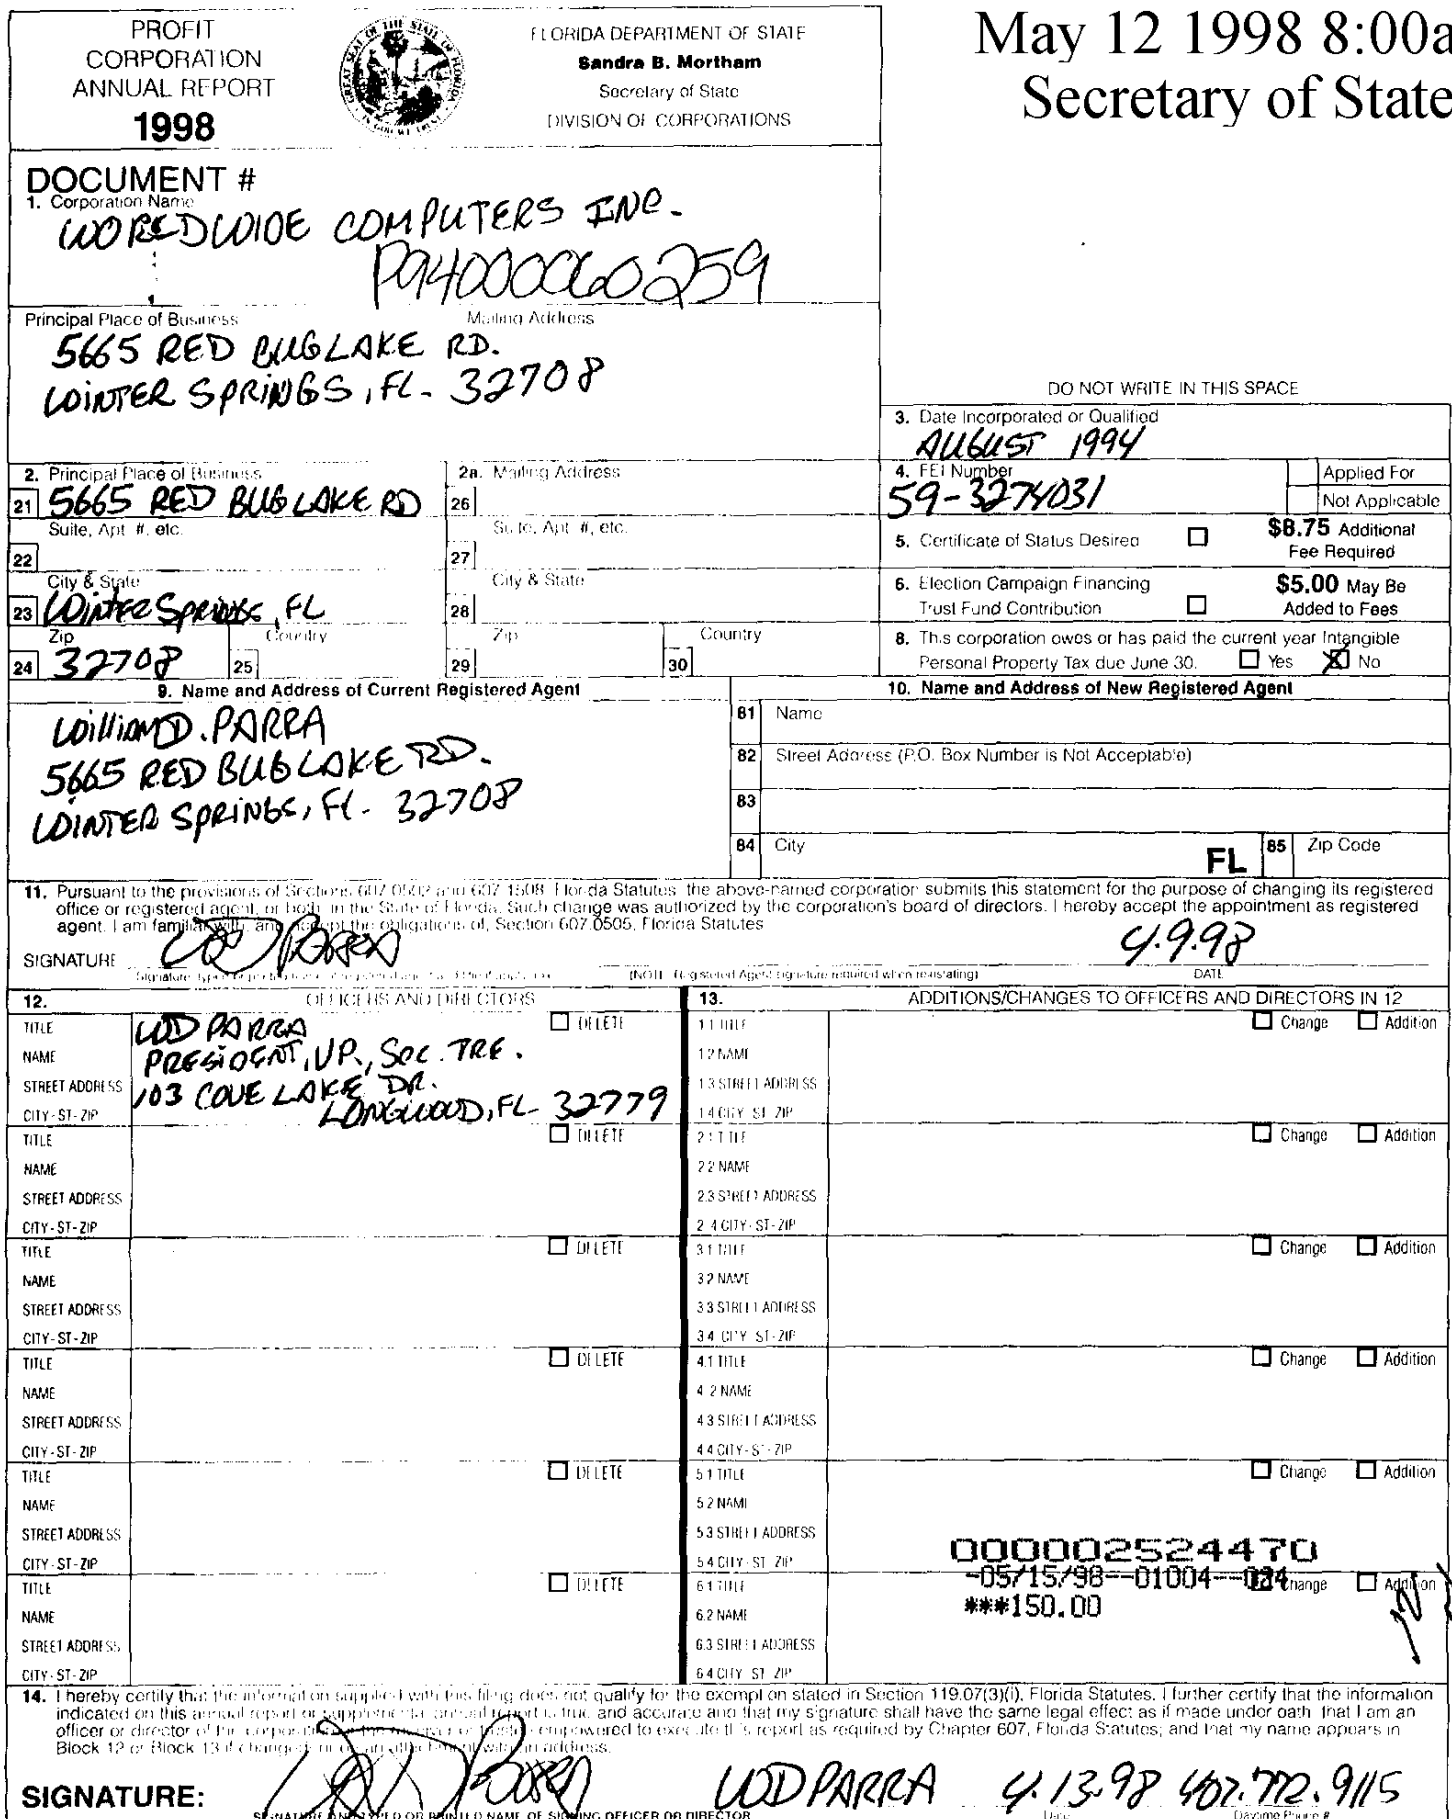 PROFIT
CORPORATION
ANNUAL REPORT
1998
FLORIDA DEPARTMENT OF STATE
Sandra B. Mortham
Secretary of State
DIVISION OF CORPORATIONS
May 12 1998 8:00a
Secretary of State
DOCUMENT #
1. Corporation Name
WORLDWIDE COMPUTERS INC.
P94000060259
Principal Place of Business Mailing Address
5665 RED BUG LAKE RD.
WINTER SPRINGS, FL. 32708
DO NOT WRITE IN THIS SPACE
3. Date Incorporated or Qualified
AUGUST 1994
2. Principal Place of Business
21 5665 RED BUG LAKE RD
Suite, Apt. #, etc.
22
City & State
23 WINTER SPRINGS, FL
Zip Country
24 32708 25
2a. Mailing Address
26
Suite, Apt. #, etc.
27
City & State
28
Zip Country
29 30
4. FEI Number
59-3274031
Applied For
Not Applicable
5. Certificate of Status Desired
$8.75 Additional
Fee Required
6. Election Campaign Financing
Trust Fund Contribution
$5.00 May Be
Added to Fees
8. This corporation owes or has paid the current year Intangible
Personal Property Tax due June 30. Yes No
9. Name and Address of Current Registered Agent
William D. PARRA
5665 RED BUG LAKE RD.
WINTER SPRINGS, FL. 32708
10. Name and Address of New Registered Agent
81 Name
82 Street Address (P.O. Box Number is Not Acceptable)
83
84 City FL 85 Zip Code
11. Pursuant to the provisions of Sections 607.0502 and 607.1508, Florida Statutes, the above-named corporation submits this statement for the purpose of changing its registered
office or registered agent, or both, in the State of Florida. Such change was authorized by the corporation's board of directors. I hereby accept the appointment as registered
agent. I am familiar with, and accept the obligations of, Section 607.0505, Florida Statutes
SIGNATURE WD Parra 4.9.98
(NOTE: Registered Agent signature required when reinstating) DATE
12. OFFICERS AND DIRECTORS
TITLE WD PARRA DELETE
NAME PRESIDENT, VP., SEC. TRE.
STREET ADDRESS 103 COVE LAKE DR.
CITY-ST-ZIP LONGWOOD, FL 32779
TITLE DELETE
NAME
STREET ADDRESS
CITY-ST-ZIP
TITLE DELETE
NAME
STREET ADDRESS
CITY-ST-ZIP
TITLE DELETE
NAME
STREET ADDRESS
CITY-ST-ZIP
TITLE DELETE
NAME
STREET ADDRESS
CITY-ST-ZIP
TITLE DELETE
NAME
STREET ADDRESS
CITY-ST-ZIP
13. ADDITIONS/CHANGES TO OFFICERS AND DIRECTORS IN 12
1.1 TITLE Change Addition
1.2 NAME
1.3 STREET ADDRESS
1.4 CITY-ST-ZIP
2.1 TITLE Change Addition
2.2 NAME
2.3 STREET ADDRESS
2.4 CITY-ST-ZIP
3.1 TITLE Change Addition
3.2 NAME
3.3 STREET ADDRESS
3.4 CITY-ST-ZIP
4.1 TITLE Change Addition
4.2 NAME
4.3 STREET ADDRESS
4.4 CITY-ST-ZIP
5.1 TITLE Change Addition
5.2 NAME
5.3 STREET ADDRESS
5.4 CITY-ST-ZIP
000002524470
-05/15/98--01004--024
***150.00
6.1 TITLE Change Addition
6.2 NAME
6.3 STREET ADDRESS
6.4 CITY-ST-ZIP
14. I hereby certify that the information supplied with this filing does not qualify for the exemption stated in Section 119.07(3)(i), Florida Statutes. I further certify that the information
indicated on this annual report or supplemental annual report is true and accurate and that my signature shall have the same legal effect as if made under oath; that I am an
officer or director of the corporation or the receiver or trustee empowered to execute this report as required by Chapter 607, Florida Statutes; and that my name appears in
Block 12 or Block 13 if changed, or on an attachment with an address.
SIGNATURE: WD Parra WD PARRA 4.13.98 407.772.9115
SIGNATURE AND TYPED OR PRINTED NAME OF SIGNING OFFICER OR DIRECTOR Date Daytime Phone #